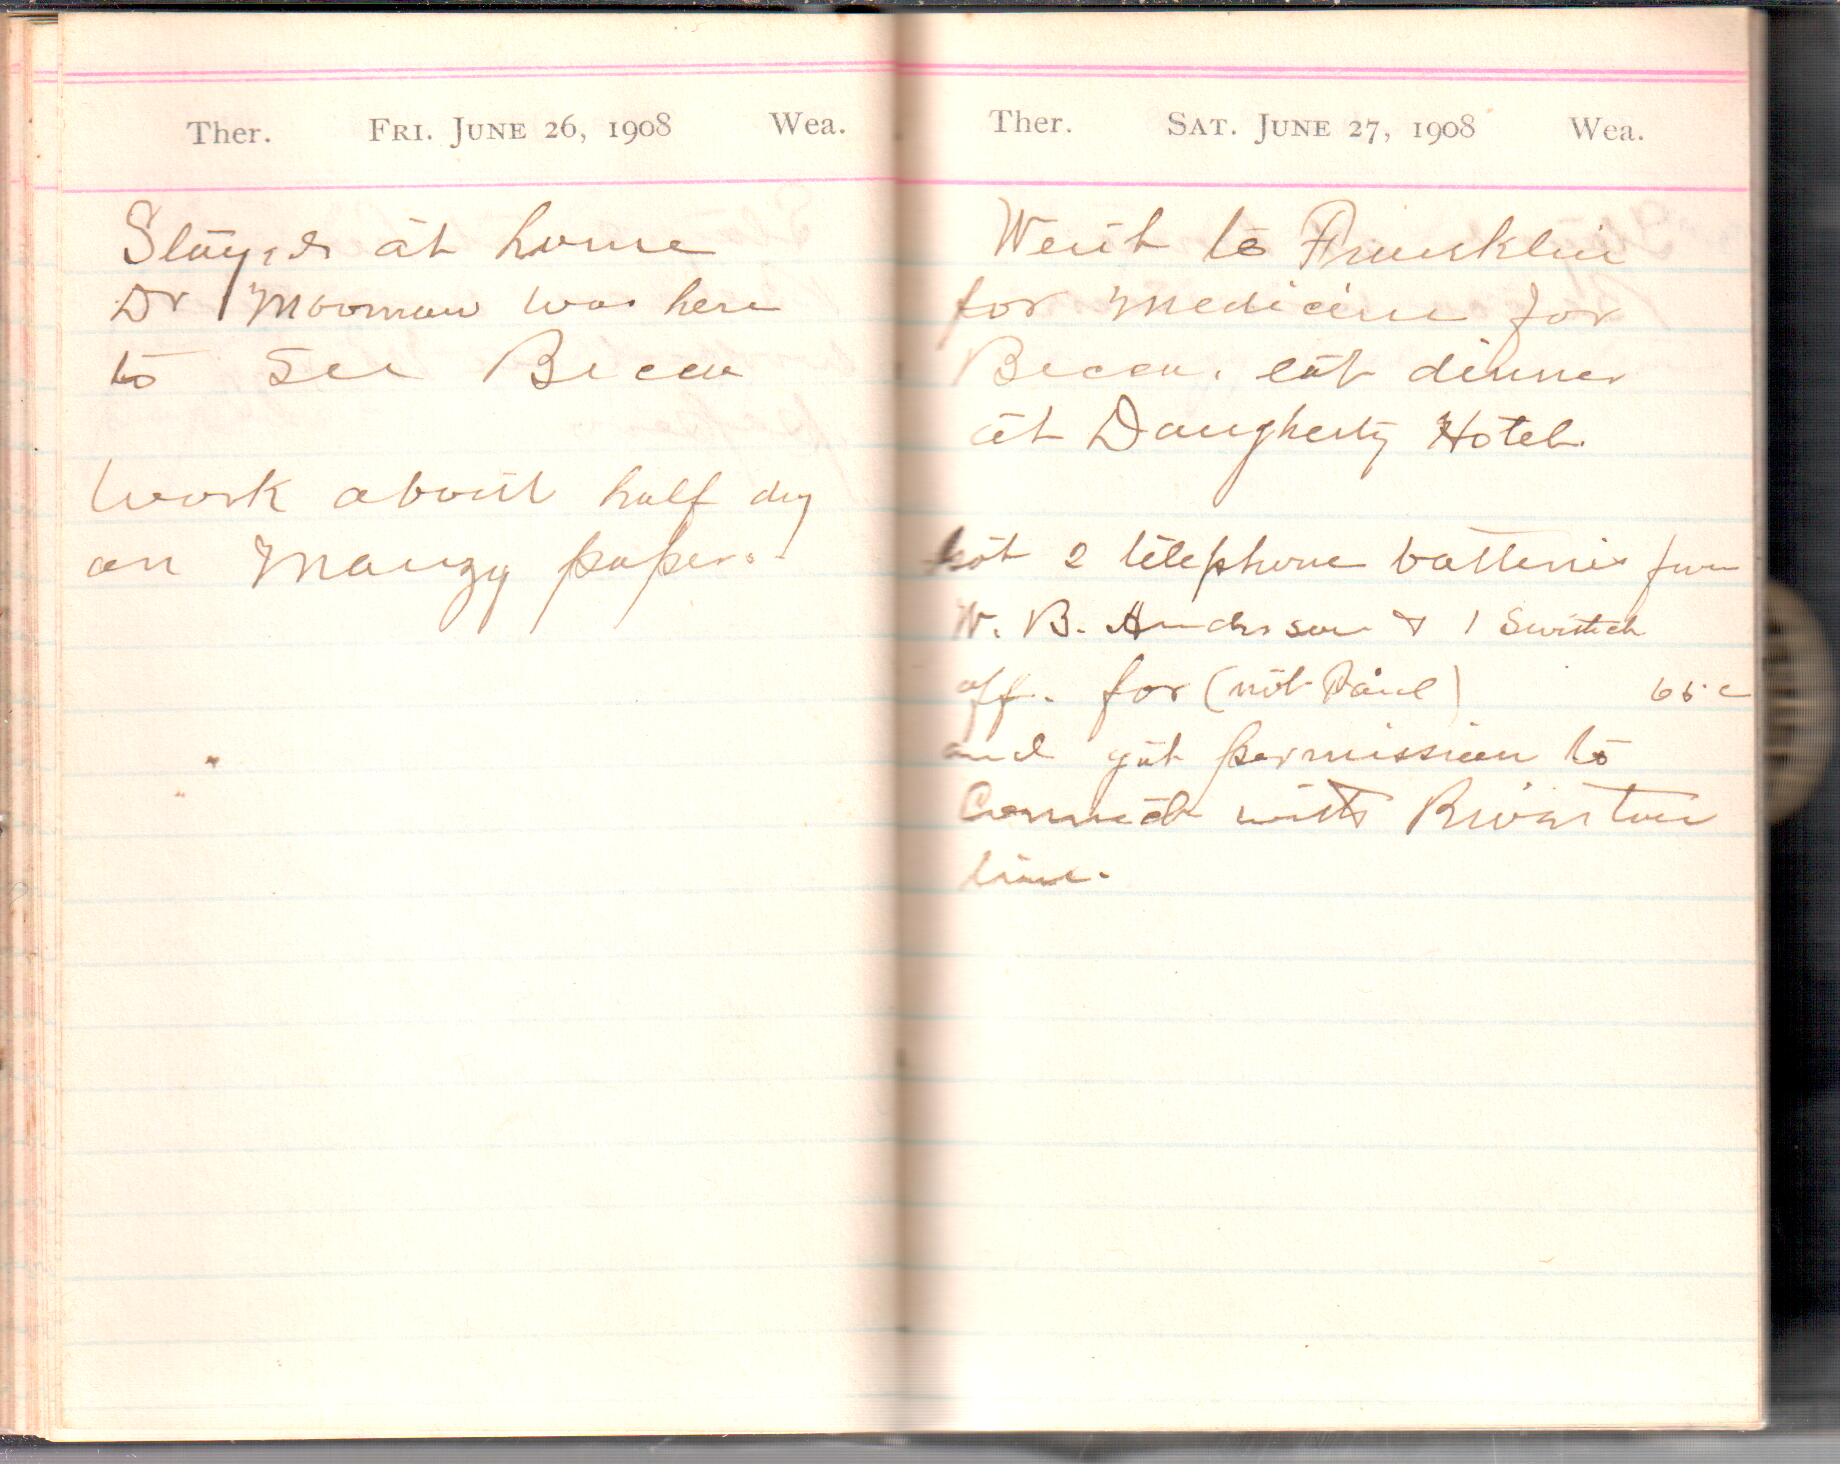 Ther. FRI. JUNE 26, 1908 Wea.
Stayed at home
Dr Moomaw was here
to see Becca
Work about half day
on Mauzy paper.
Ther. SAT. JUNE 27, 1908 Wea.
Went to Franklin
for medicine for
Becca. eat dinner
at Daugherty Hotel.
Got 2 telephone batteries from
W. B. Anderson & 1 Switch
off. for (not Paid) 65c
and got permission to
Connect with Riverton
line.